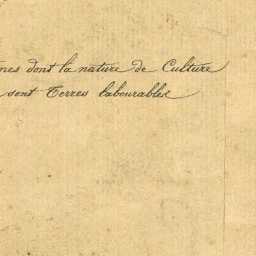 nes dont la nature de Culture
sont Terres labourables